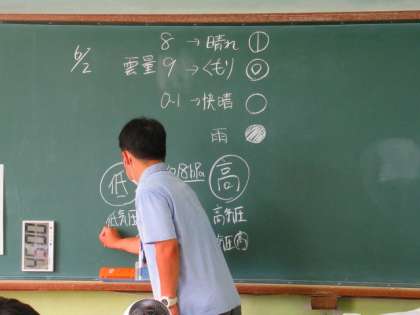 6/2
8 → 晴れ
雲量 9 → くもり
0-1 → 快晴
雨
低 18hPa 高
低気圧 高気圧